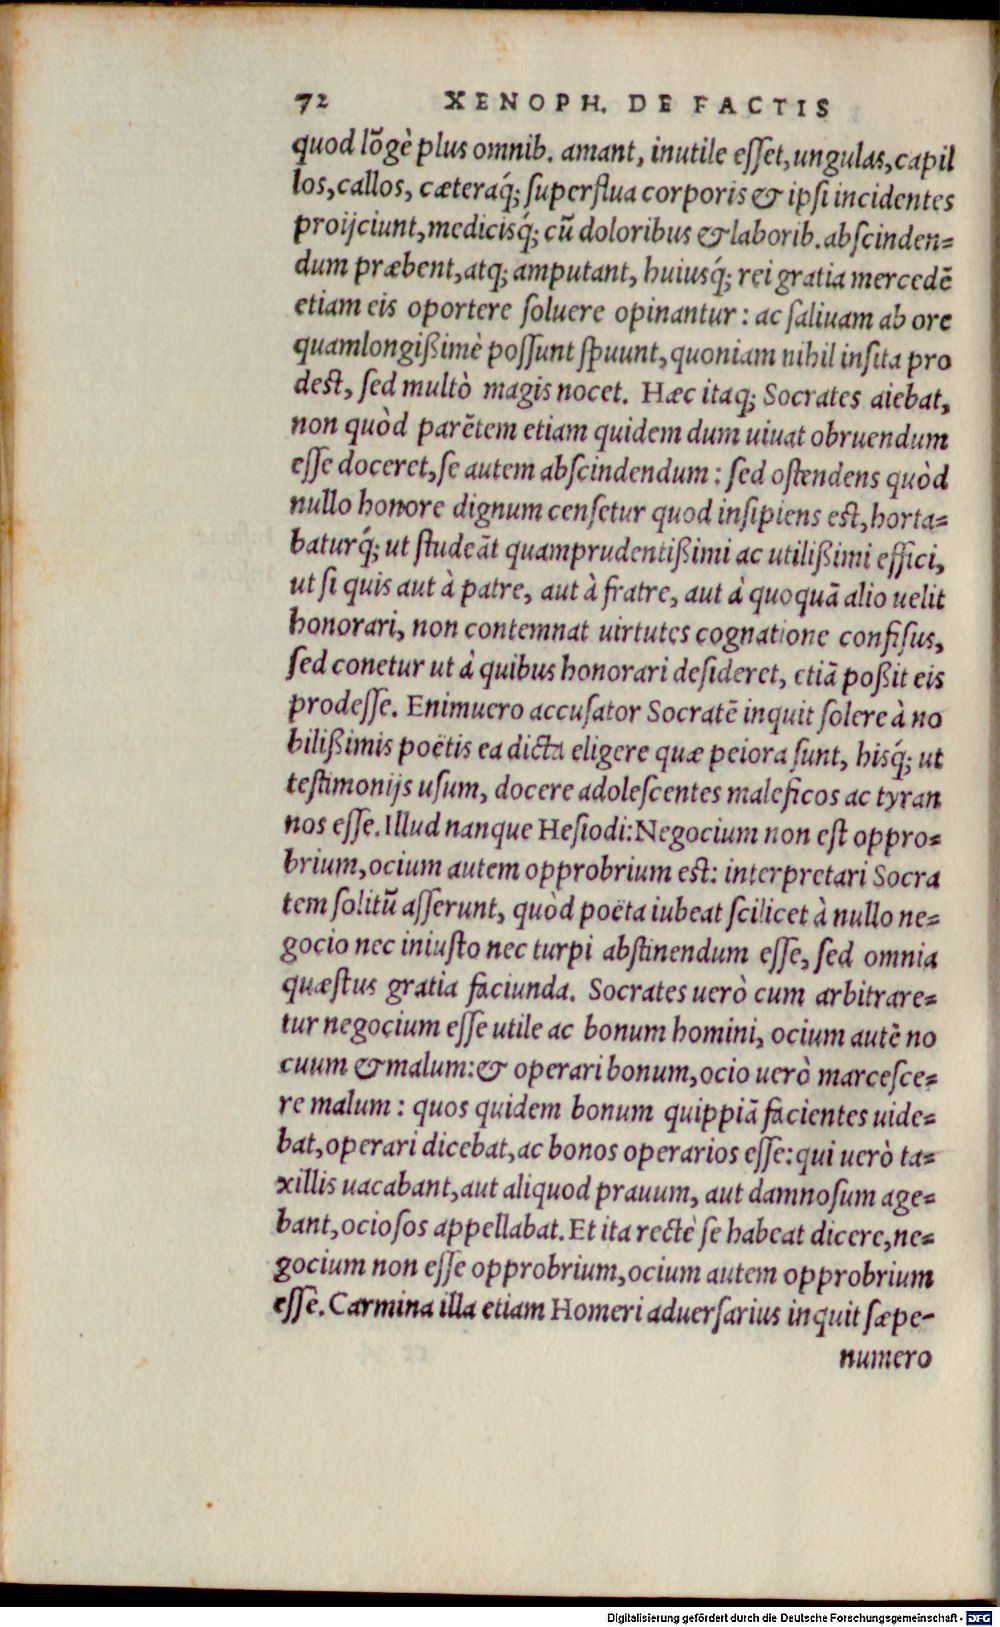 72 XENOPH. DE FACTIS
quod lõgè plus omnib. amant, inutile eſſet, ungulas, capil
los, callos, cæteraq́; ſuperflua corporis & ipſi incidentes
proijciunt, medicisq́; cũ doloribus & laborib. abſcinden-
dum præbent, atq; amputant, huiusq́; rei gratia mercedẽ
etiam eis oportere ſoluere opinantur: ac ſaliuam ab ore
quamlongißimè poſſunt ſpuunt, quoniam nihil inſita pro
dest, ſed multò magis nocet. Hæc itaq; Socrates aiebat,
non quòd parẽtem etiam quidem dum uiuat obruendum
eſſe doceret, ſe autem abſcindendum: ſed oſtendens quòd
nullo honore dignum cenſetur quod inſipiens est, horta-
baturq́; ut ſtudeãt quamprudentißimi ac utilißimi effici,
ut ſi quis aut à patre, aut à fratre, aut à quoquã alio uelit
honorari, non contemnat uirtutes cognatione confiſus,
ſed conetur ut à quibus honorari deſideret, etiã poßit eis
prodeſſe. Enimuero accuſator Socratẽ inquit ſolere à no
bilißimis poëtis ea dicta eligere quæ peiora ſunt, hisq́; ut
teſtimonijs uſum, docere adoleſcentes maleficos ac tyran
nos eſſe. Illud nanque Heſiodi: Negocium non eſt oppro-
brium, ocium autem opprobrium est: interpretari Socra
tem ſolitũ aſſerunt, quòd poëta iubeat ſcilicet à nullo ne-
gocio nec iniuſto nec turpi abſtinendum eſſe, ſed omnia
quæſtus gratia faciunda. Socrates uerò cum arbitrare-
tur negocium eſſe utile ac bonum homini, ocium autẽ no
cuum & malum: & operari bonum, ocio uerò marceſce-
re malum: quos quidem bonum quippiã facientes uide-
bat, operari dicebat, ac bonos operarios eſſe: qui uerò ta-
xillis uacabant, aut aliquod prauum, aut damnoſum age-
bant, ocioſos appellabat. Et ita rectè ſe habeat dicere, ne-
gocium non eſſe opprobrium, ocium autem opprobrium
eſſe. Carmina illa etiam Homeri aduerſarius inquit ſæpe-
numero
Digitalisierung gefördert durch die Deutsche Forschungsgemeinschaft - DFG